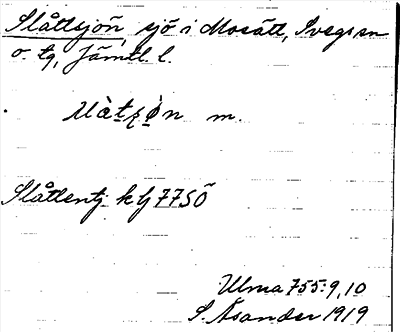 Slåttsjön, sjö i Mosätt, Svegs sn
o. tg, Jämtl. l.
m.
Slåttentj. kbj 77SÖ
Ulma 755:9,10
S. Åsander 1919